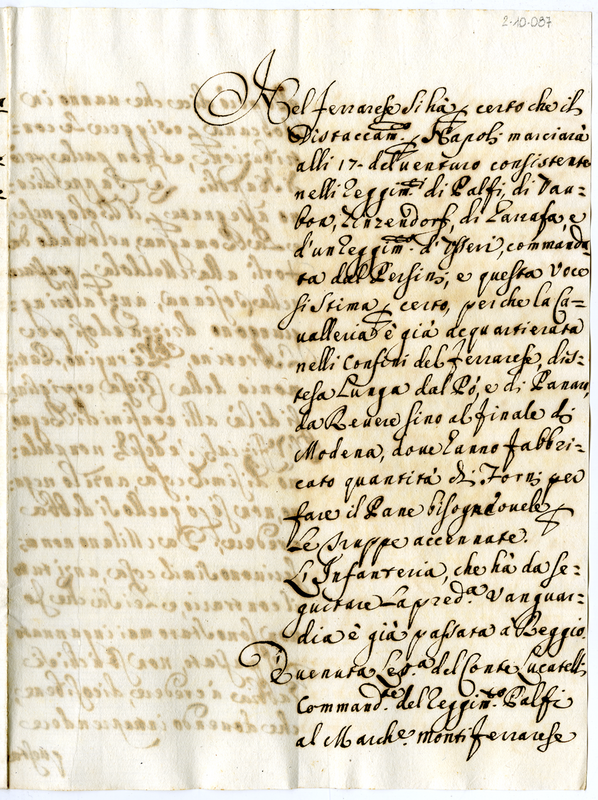 2-10-087
Nel Ferrarese si hà p certo che il
Distaccam.to p Napoli marciarà
alli 17 - del uenturo consistente
nelli Reggim.ti di Palfi, di Vau-
bon, Zinzendorf, di Carrafa, e
d'un Reggim.to d'Usseri, comman
ta dal Persin, e questa voce
si stima p certo, perche la Ca=
ualleria è già acquartierata
nelli Confini del Ferrarese, dis=
tesa Lunga dal Pò, e di Panaro,
da Reuere sino al finale di
Modena, doue hanno fabbri=
cato quantità di Forni per
fare il Pane bisogneuole p
le Truppe accennate.
L'Infanteria, che hà da se=
guitare la pred.a Vanguar=
dia è già passata à Reggio.
È uenuta del Conte Lucatelli
Command.te del Reggim.to Palfi
al March.e monti Ferrarese